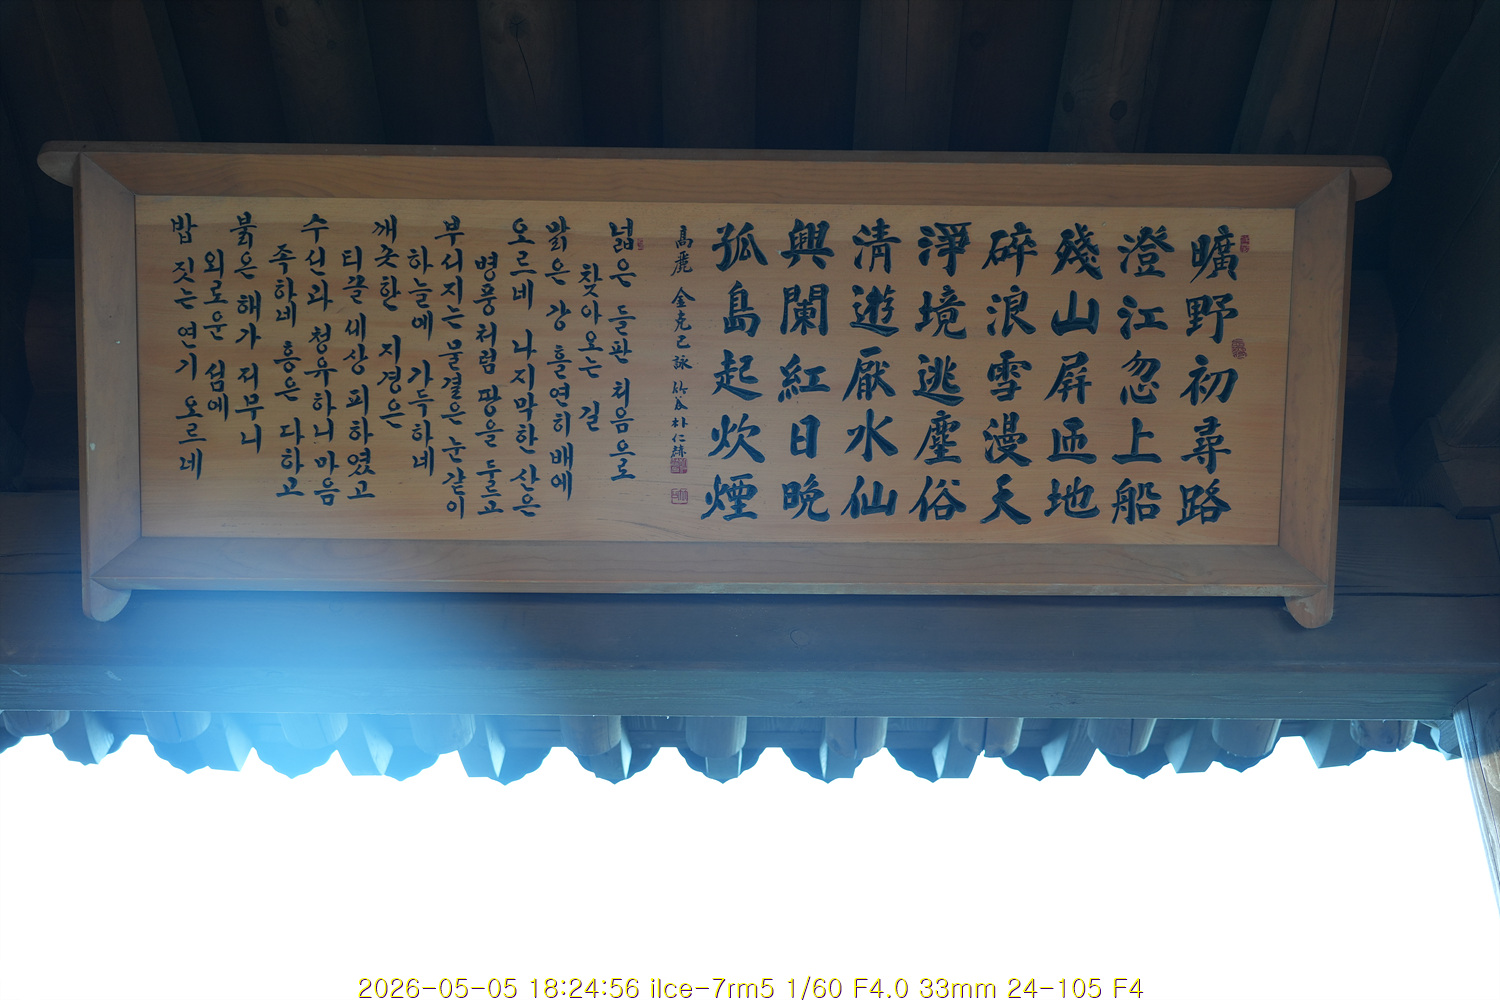 曠野初尋路
澄江忽上船
殘山屛匝地
碎浪雪漫天
淨境逃塵俗
清遊厭水仙
興闌紅日晩
孤島起炊煙
高麗 金克己 詠 竹谷 朴仁
넓은 들판 처음으로
찾아오는 길
맑은 강 홀연히 배에
오르비 나지막한 산은
병풍처럼 땅을 두르고
부서지는 물결은 눈같이
하늘에 가득하네
깨끗한 지경은
티끌 세상 피하였고
수선과 청유하니 마음
족하비 흥은 다하고
붉은 해가 저무니
외로운 섬에
밥 짓는 연기 오르네
2026-05-05 18:24:56 ilce-7rm5 1/60 F4.0 33mm 24-105 F4